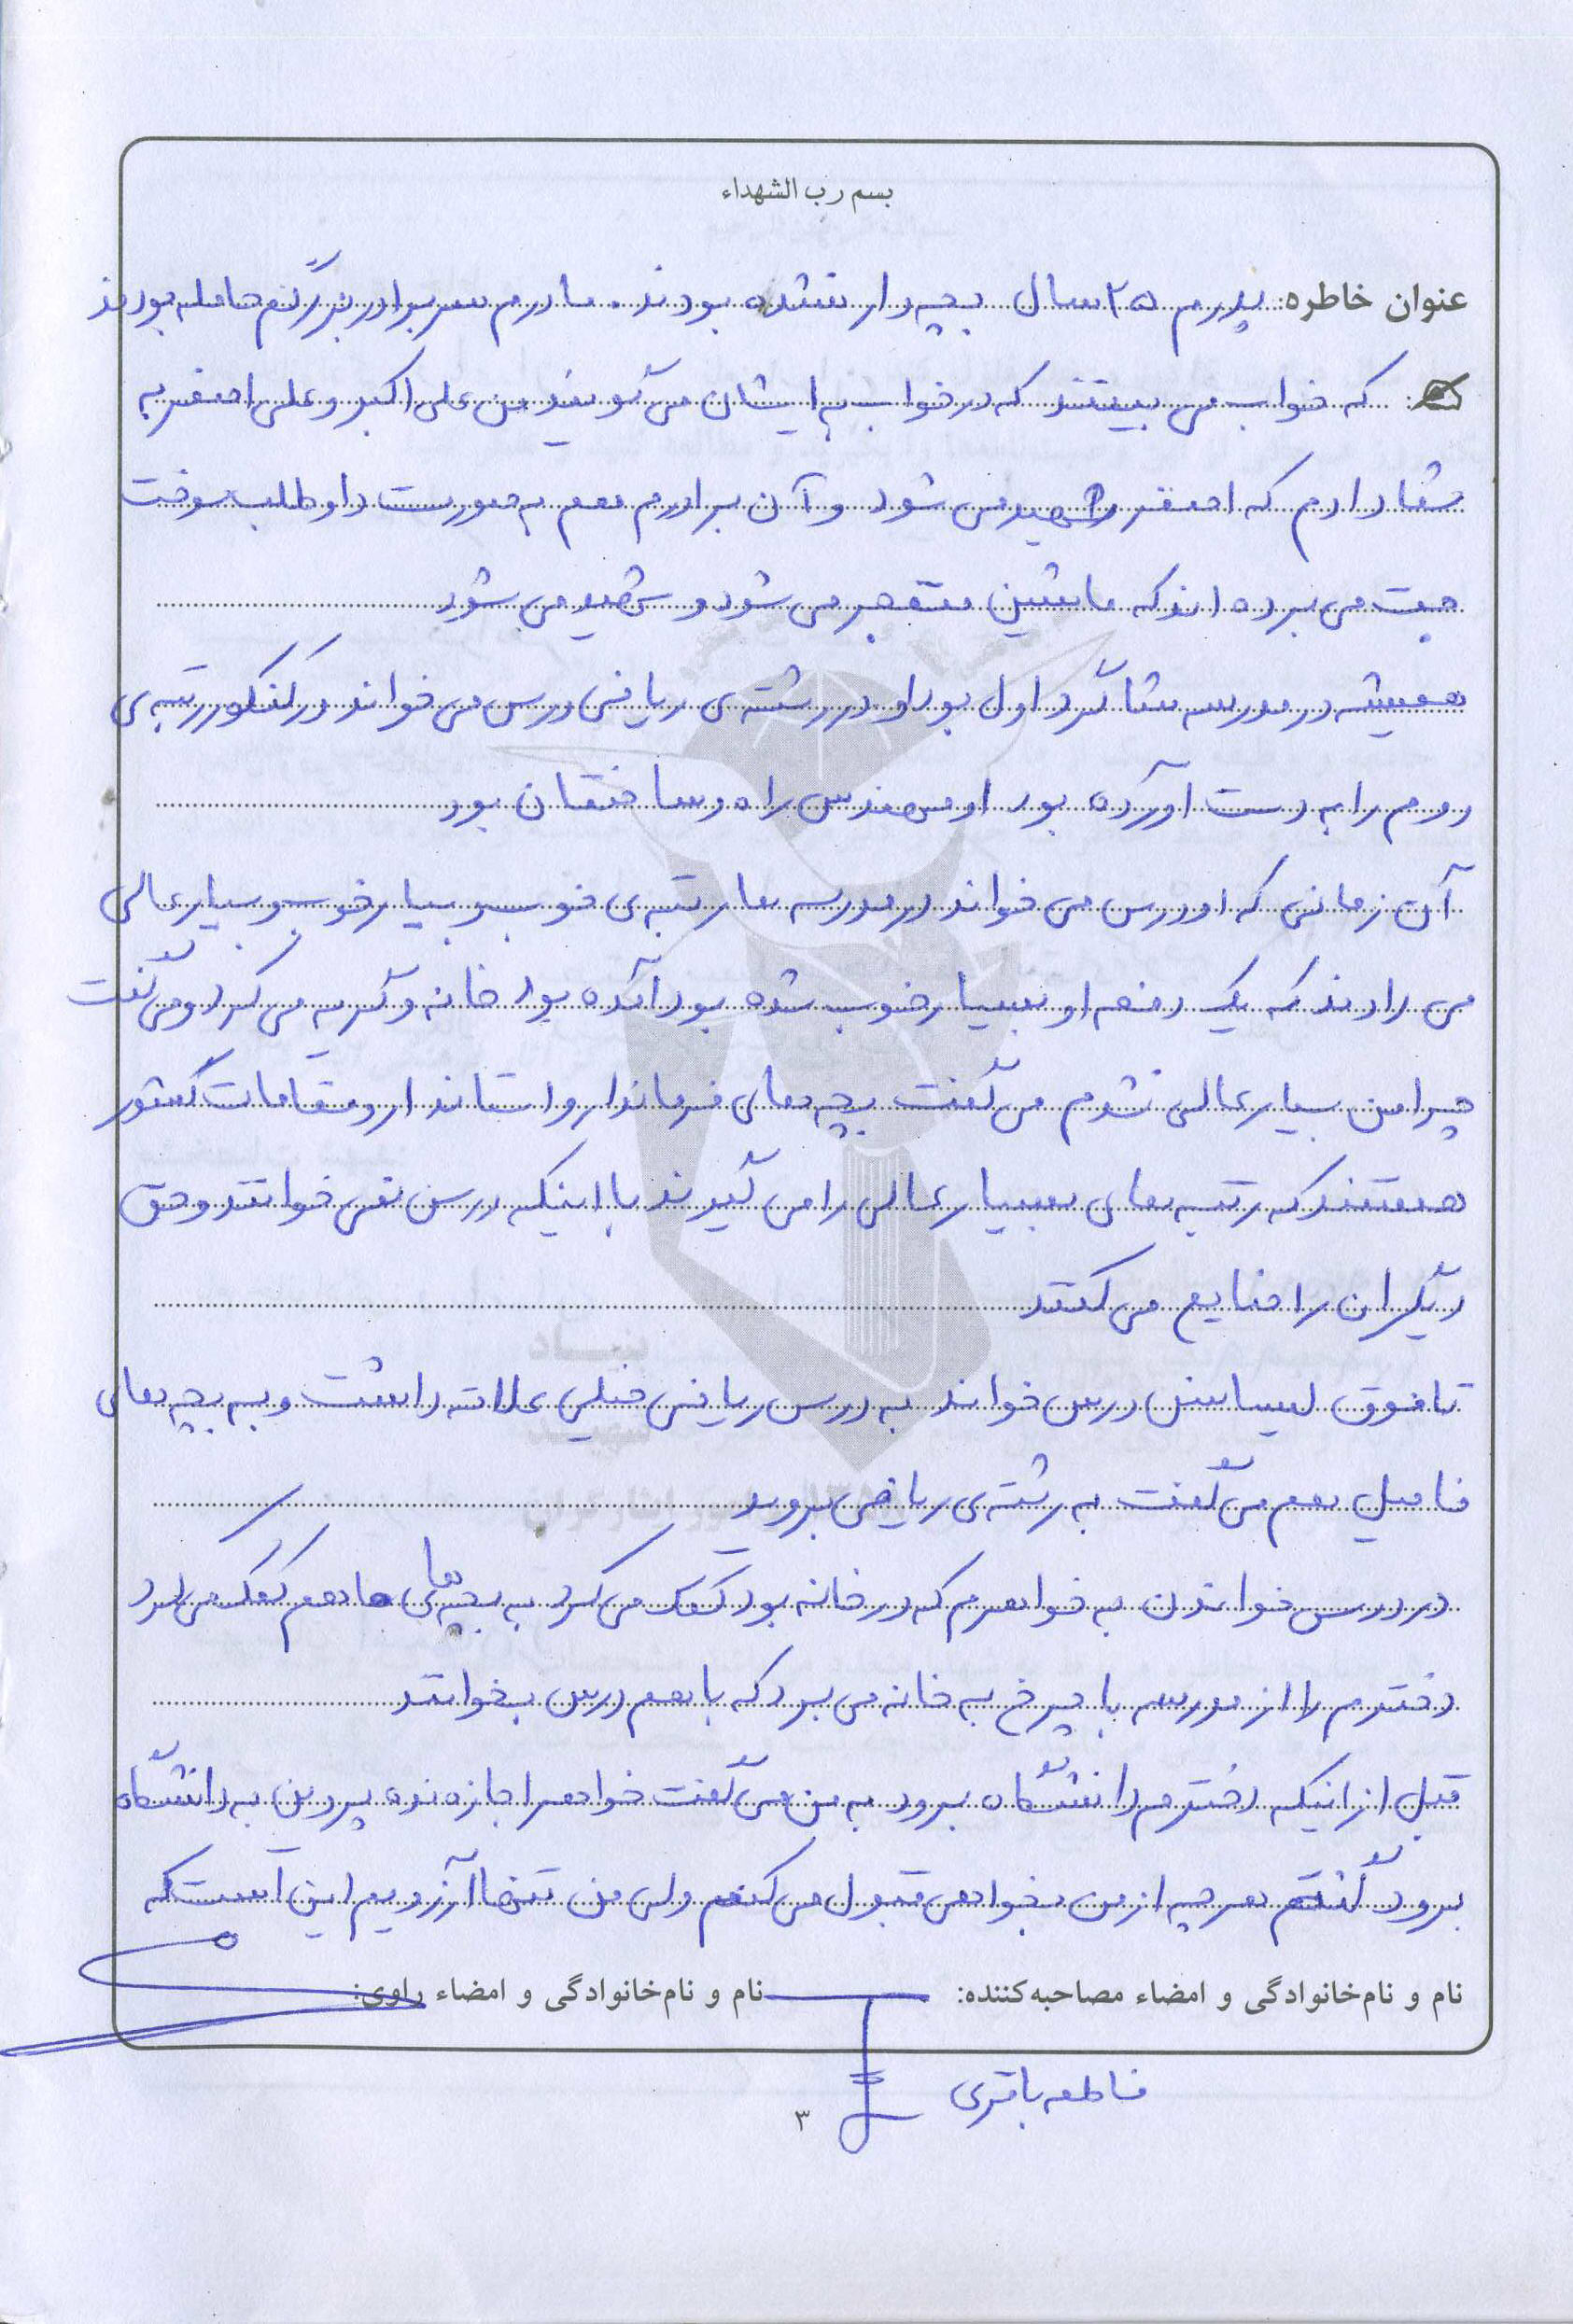 بسم رب الشهداء
عنوان خاطره: پدرم ۲۵ سال بچه دار نشده بودند. مادرم سر برادر بزرگم حامله بودند
که خواب می بینند که در خواب به ایشان می گویند من علی اکبر و علی اصغر به
شما دادم که اصغر شهید می شود و آن برادرم هم به صورت داوطلب سوخت
جت می برده اند که ماشین منفجر می شود و شهید می شود
همیشه در مدرسه شاگرد اول بود او در رشته ی ریاضی درس می خواند در کنکور رتبه ی
دوم را به دست آورده بود او مهندس راه و ساختمان بود
آن زمانی که او درس می خواند در مدرسه ها رتبه ی خوب و بسیار خوب و بسیار عالی
می دادند که یک دفعه او بسیار خوب شده بود آمده بود خانه و گریه می کرد و می گفت
چرا من بسیار عالی نشدم می گفت بچه های فرماندار و استاندار و مقامات کشور
هستند که رتبه های بسیار عالی را می گیرند با اینکه درس نمی خوانند و حق
دیگران را ضایع می کنند
تا فوق لیسانس درس خواند به درس ریاضی خیلی علاقه داشت و به بچه های
فامیل هم می گفت به رشته ی ریاضی بروید
در درس خواندن به خواهرم که در خانه بود کمک می کرد به بچه های ما هم کمک می کرد
دخترم را از مدرسه با چرخ به خانه می برد که با هم درس بخوانند
قبل از اینکه دخترم دانشگاه برود به من می گفت خواهر اجازه نده پروین به دانشگاه
برود گفتم هر چه از من بخواهی قبول می کنم ولی من تنها آرزویم این است که
نام و نام خانوادگی و امضاء مصاحبه کننده: نام و نام خانوادگی و امضاء راوی:
فاطمه باقری
۳